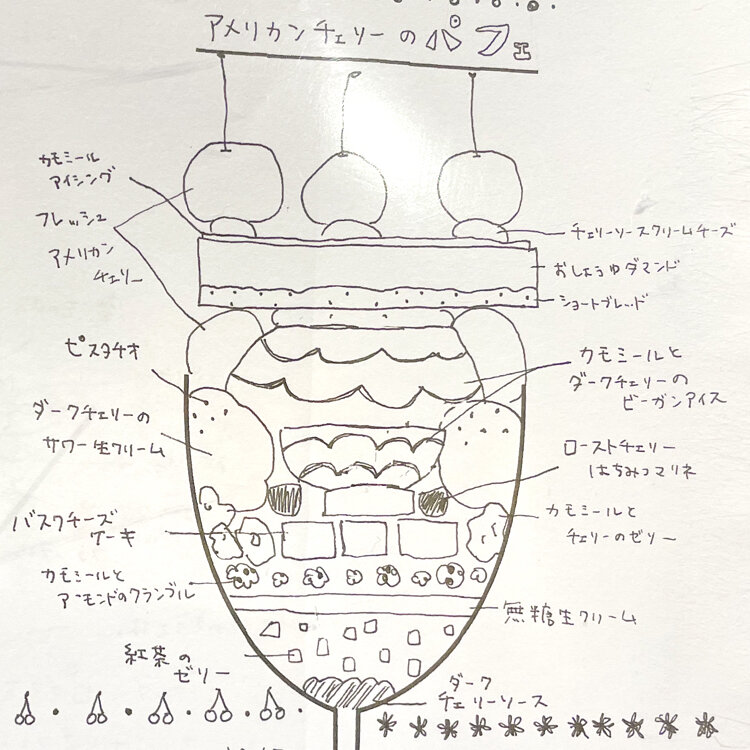 アメリカンチェリーのパフェ
カモミール
アイシング
フレッシュ
アメリカン
チェリー
チェリーソースクリームチーズ
おしょうゆダマンド
ショートブレッド
ピスタチオ
カモミールと
ダークチェリーの
ビーガンアイス
ダークチェリーの
サワー生クリーム
ローストチェリー
はちみつマリネ
バスクチーズ
ケーキ
カモミールと
チェリーのゼリー
カモミールと
アーモンドのクランブル
無糖生クリーム
紅茶の
ゼリー
ダーク
チェリーソース